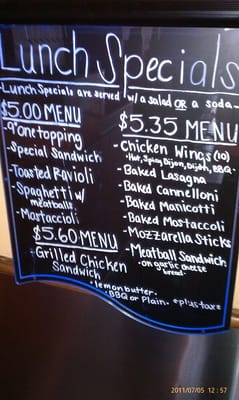 Lunch Specials
-Lunch Specials are served w/a salad OR a soda-
$5.00 MENU
-9" one topping
-Special Sandwich
-Toasted Ravioli
-Spaghetti w/
meatballs
-Mostaccioli
$5.35 MENU
-Chicken Wings (10)
-Hot, Spicy Dijon, Dijon, BBQ-
-Baked Lasagna
-Baked Cannelloni
-Baked Manicotti
-Baked Mostaccoli
-Mozzarella Sticks
-Meatball Sandwich
-on garlic cheese
bread-
$5.60 MENU
-Grilled Chicken
Sandwich
-lemon butter,
-BBQ or Plain. *plus tax*
2011/07/05 12:57